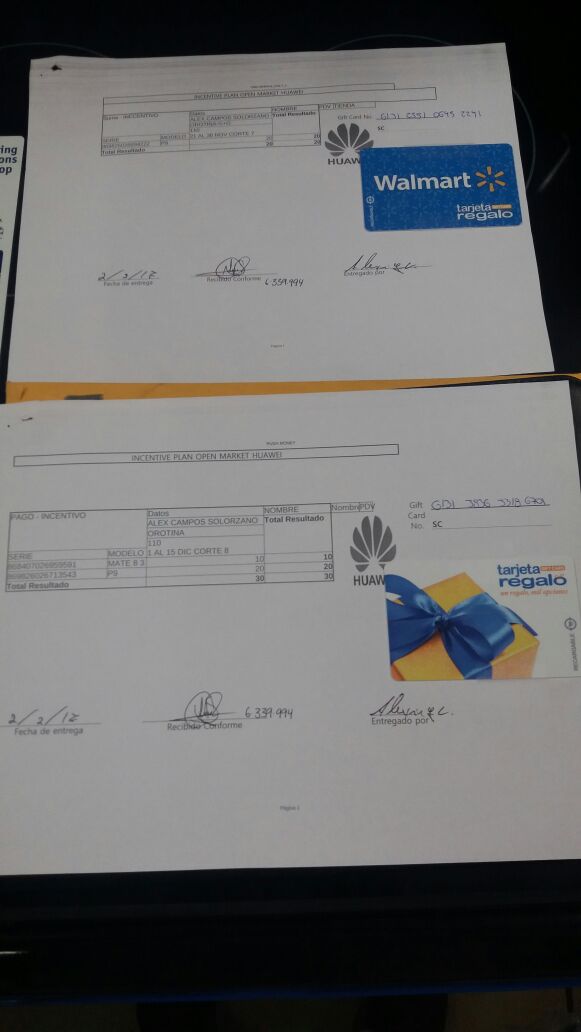 ing
ons
op
INCENTIVE PLAN OPEN MARKET HUAWEI
INCENTIVO
Datos
NOMBRE
PDV TIENDA
ALEX CAMPOS SOLORZANO
Total Resultado
Gift Card No.
OROTINA
SC
110
SERIE
MODELO
21 AL 30 NOV CORTE 7
P9
20
20
Total Resultado
20
20
HUAW
Walmart
tarjeta
regalo
2/2/17
Fecha de entrega
Recibido Conforme
6 339.994
Entregado por
Página 1
RUSH MONEY
INCENTIVE PLAN OPEN MARKET HUAWEI
PAGO - INCENTIVO
Datos
NOMBRE
Nombre PDV
ALEX CAMPOS SOLORZANO
Total Resultado
OROTINA
110
Gift
Card
No.
SC
SERIE
MODELO
1 AL 15 DIC CORTE 8
868407026959591
MATE 8 3
10
10
869826026713543
P9
20
20
Total Resultado
30
30
HUAW
tarjeta GIFT CARD
regalo
un regalo, mil opciones
RECARGABLE
2/2/17
Fecha de entrega
Recibido Conforme
6 339.994
Entregado por
Página 1